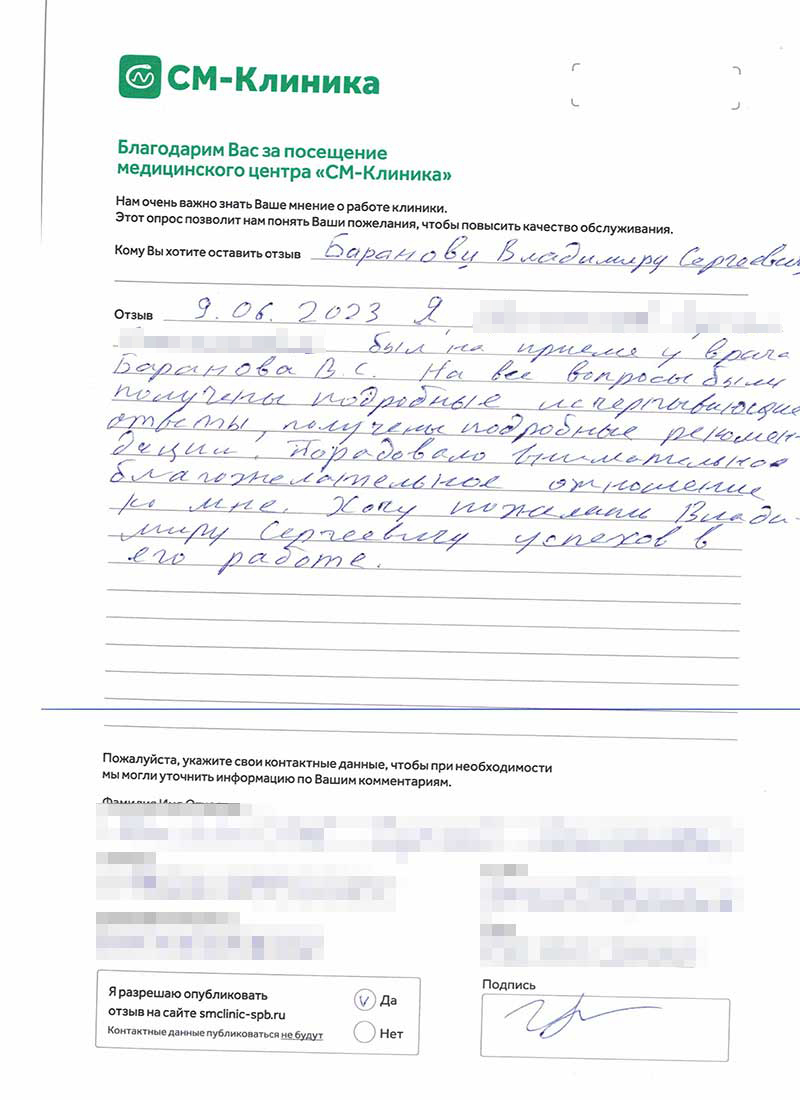 СМ-Клиника
Благодарим Вас за посещение
медицинского центра «СМ-Клиника»
Нам очень важно знать Ваше мнение о работе клиники.
Этот опрос позволит нам понять Ваши пожелания, чтобы повысить качество обслуживания.
Кому Вы хотите оставить отзыв Баранову Владимиру Сергеевичу
Отзыв 9.06.2023 Я,
был на приеме у врача
Баранова В.С. На все вопросы были
получены подробные исчерпывающие
ответы, получены подробные рекомен-
дации. Порадовало внимательное
благожелательное отношение
ко мне. Хочу пожелать Влади-
миру Сергеевичу успехов в
его работе.
Пожалуйста, укажите свои контактные данные, чтобы при необходимости
мы могли уточнить информацию по Вашим комментариям.
Я разрешаю опубликовать
отзыв на сайте smclinic-spb.ru
Контактные данные публиковаться не будут
Да
Нет
Подпись